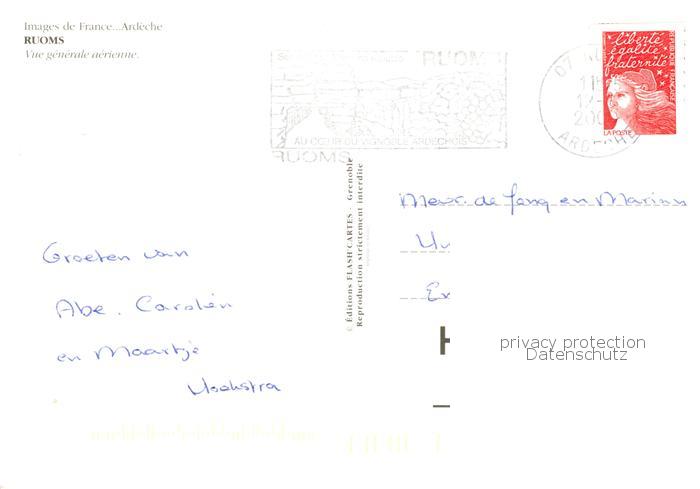 Images de France...Ardèche
RUOMS
Vue générale aérienne.
RUOMS
AU CŒUR DU VIGNOBLE ARDECHOIS
RUOMS
07
ARDECHE
liberté
égalité
fraternité
REPUBLIQUE FRANÇAISE
LA POSTE
© Éditions FLASH CARTES - Grenoble
Reproduction strictement interdite
Groeten van
Abe. Carolien
en Maartje
Hoekstra
Mevr. de Jong en Marian
privacy protection
Datenschutz